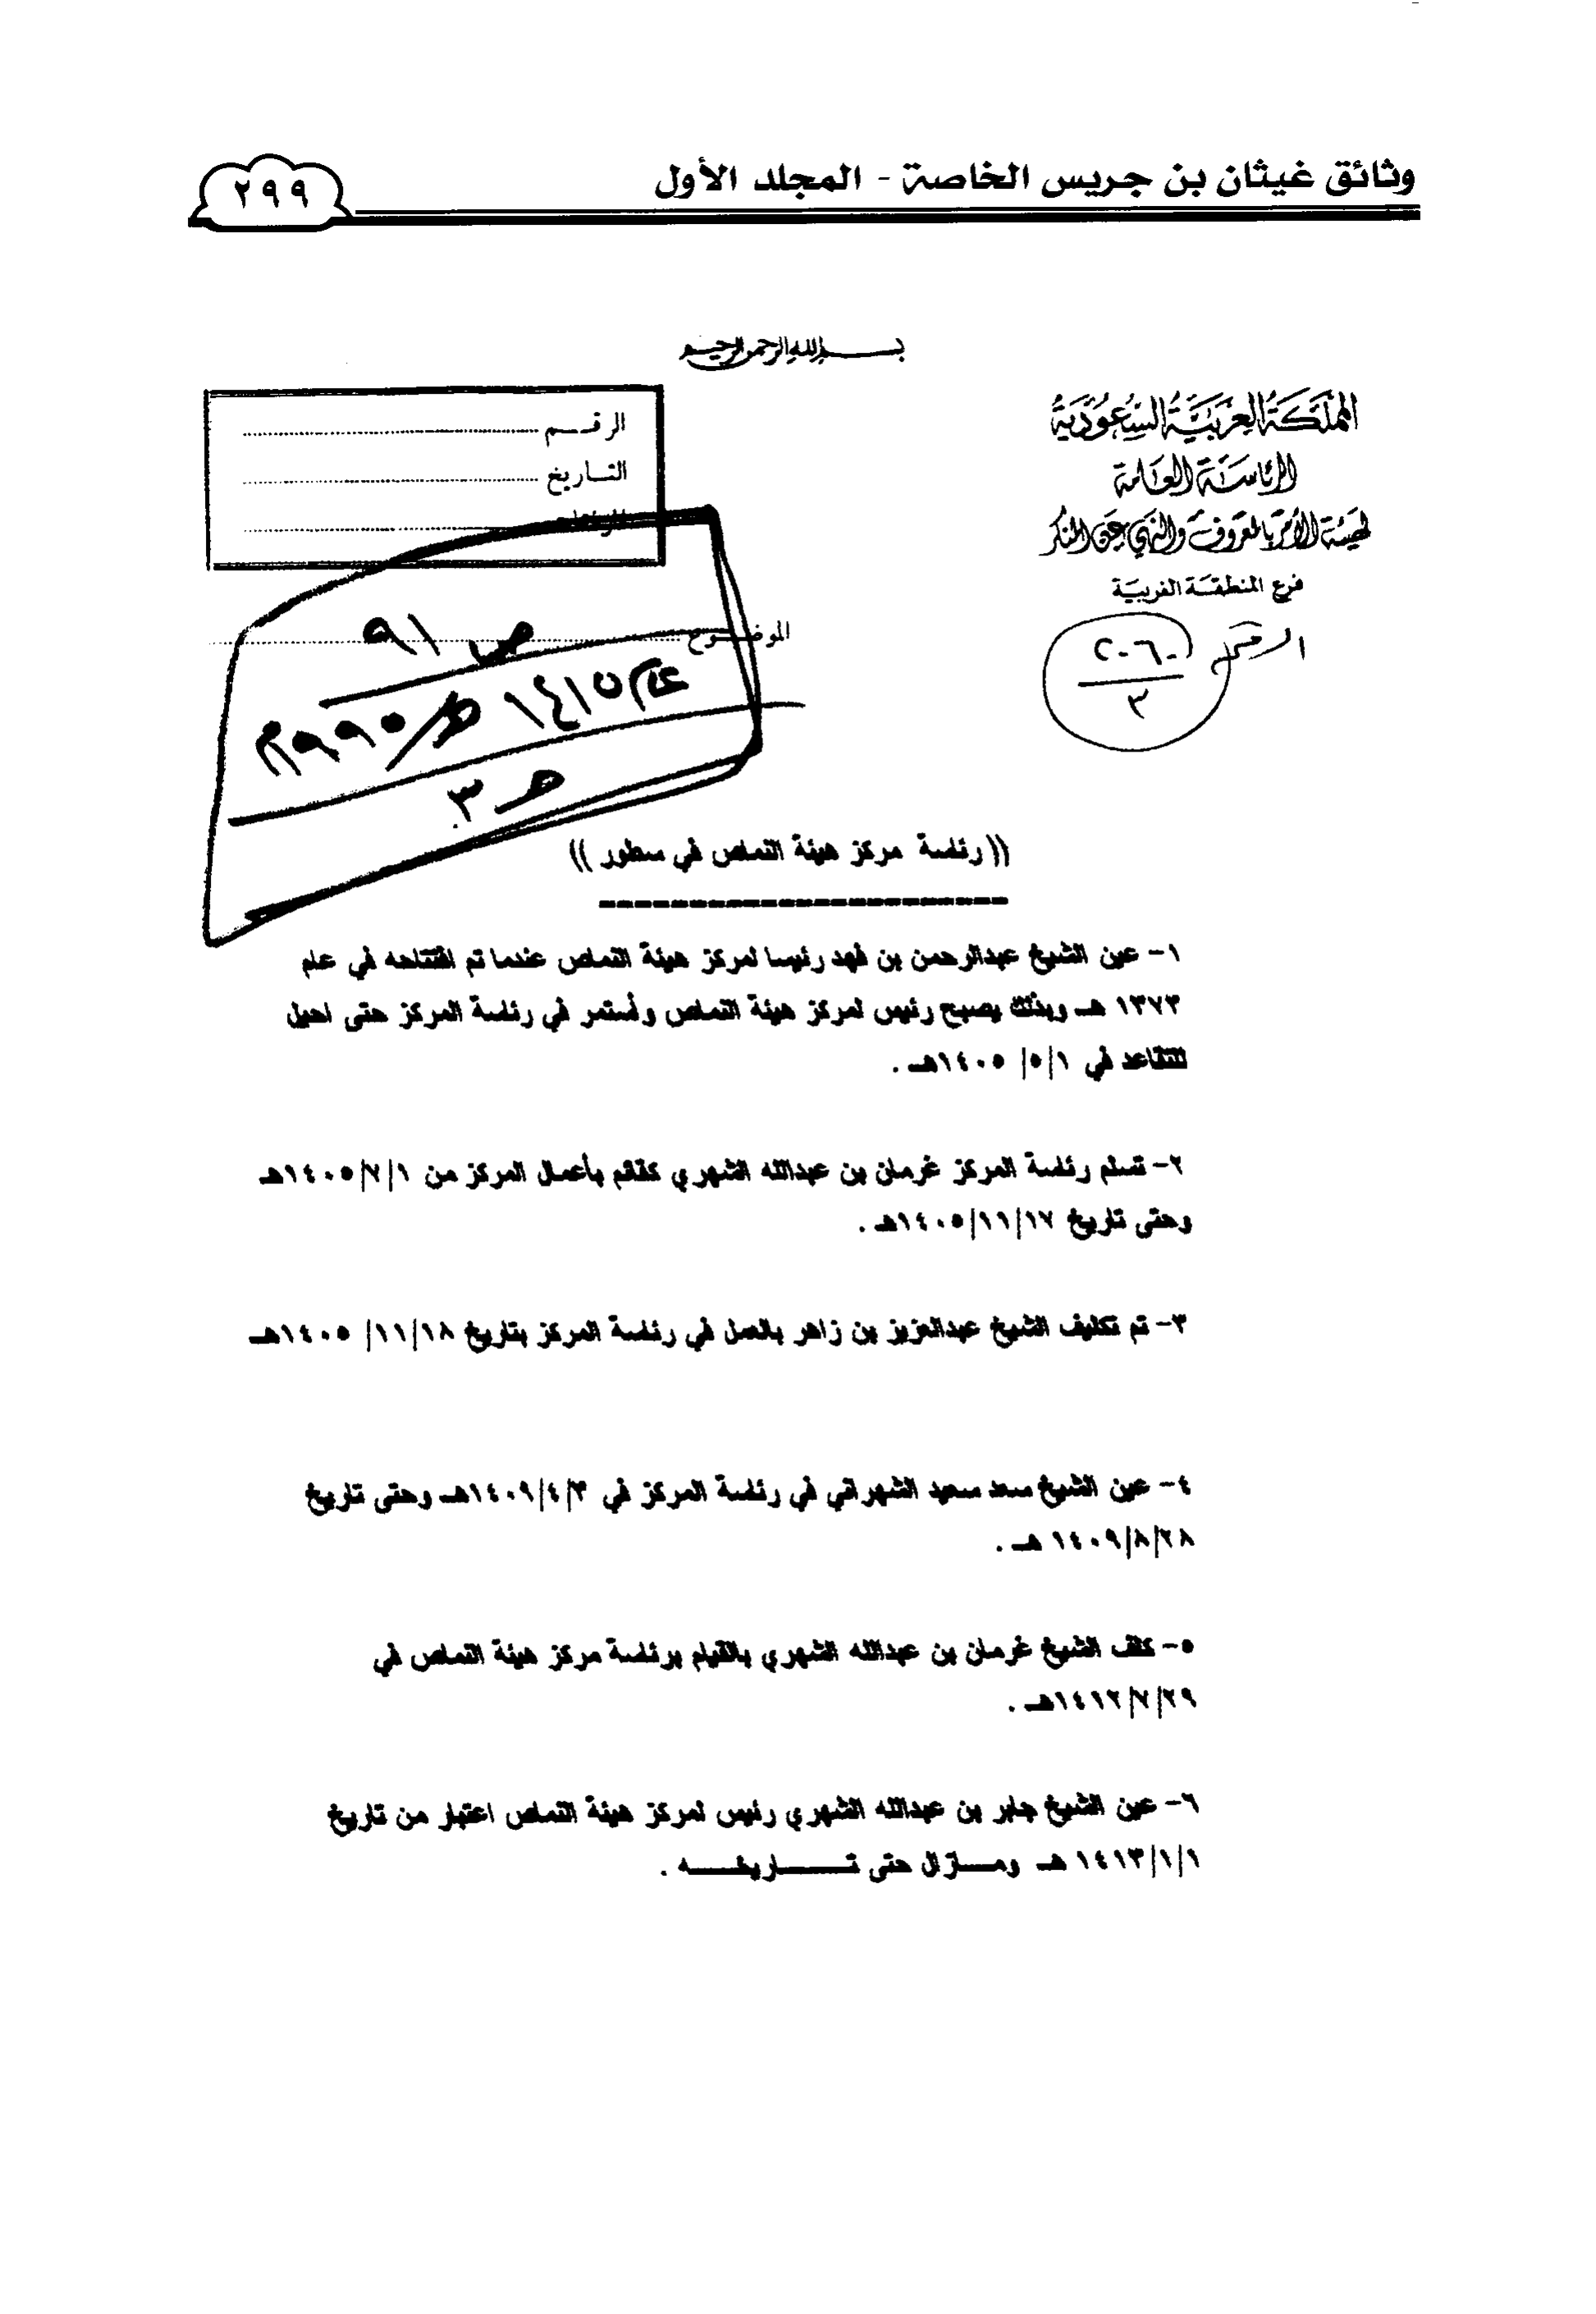 وثائق غيثان بن جريس الخاصة - المجلد الأول
٢٩٩
بسم الله الرحمن الرحيم
المملكة العربية السعودية
الرئاسة العامة
لهيئة الأمر بالمعروف والنهي عن المنكر
فرع المنطقة الغربية
الرقم ٢٠٦٠
٣
الرقم
التاريخ
الموضوع
ص ٩١
عام ١٤١٥هـ/١٩٩٥م
(( رئاسة مركز هيئة النماص في سطور ))
١- عين الشيخ عبدالرحمن بن فهد رئيسا لمركز هيئة النماص عندما تم افتتاحه في عام
١٣٧٣ هـ وبذلك يصبح رئيس لمركز هيئة النماص وأستمر في رئاسة المركز حتى احيل
للتقاعد في ١/٥/ ١٤٠٥هـ .
٢- تسلم رئاسة المركز غرمان بن عبدالله الشهري كقائم بأعمال المركز من ١/٧/١٤٠٥هـ
وحتى تاريخ ١٧/١١/١٤٠٥هـ .
٣- تم تكليف الشيخ عبدالعزيز بن زاهر بالعمل في رئاسة المركز بتاريخ ١٨/١١/ ١٤٠٥هـ
٤- عين الشيخ سعد سعيد الشهراني في رئاسة المركز في ٣/٤/١٤٠٩هـ وحتى تاريخ
٢٨/٨/١٤٠٩ هـ .
٥- كلف الشيخ غرمان بن عبدالله الشهري بالقيام برئاسة مركز هيئة النماص في
٢٩/٧/١٤١٢هـ .
٦- عين الشيخ جابر بن عبدالله الشهري رئيس لمركز هيئة النماص اعتبار من تاريخ
١/١/١٤١٣ هـ ومـازال حتى تـــاريخـــه .